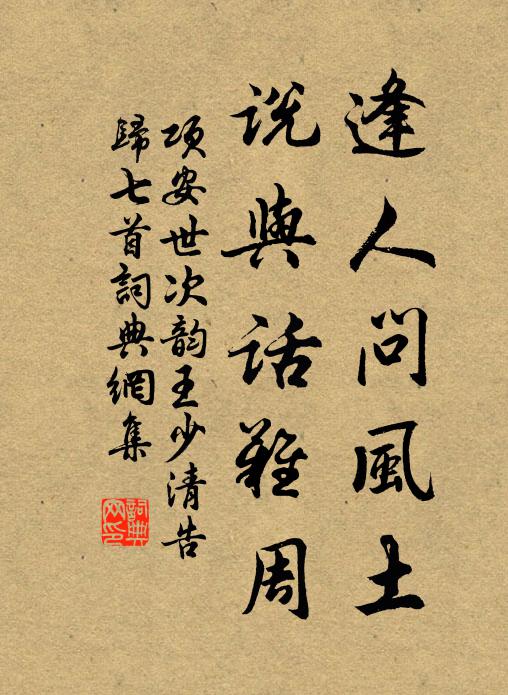 逢人問風土
說與話難周
項安世次韵王少清告
歸七首詞典網集
詞典网印